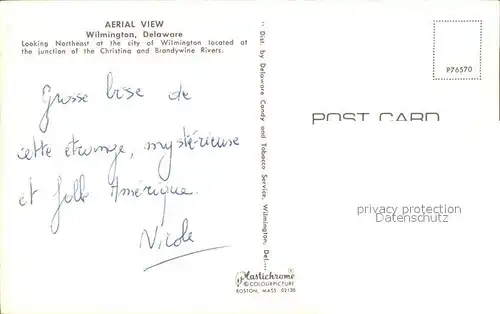 AERIAL VIEW
Wilmington, Delaware
Looking Northeast at the city of Wilmington located at
the junction of the Christina and Brandywine Rivers.
Grosse bise de
cette étrange, mystérieuse
et folle Amérique.
Nicole
Plastichrome
© COLOURPICTURE
BOSTON, MASS 02130
Dist. by Delaware Candy and Tobacco Service, Wilmington, Del.
P76570
POST CARD
privacy protection
Datenschutz